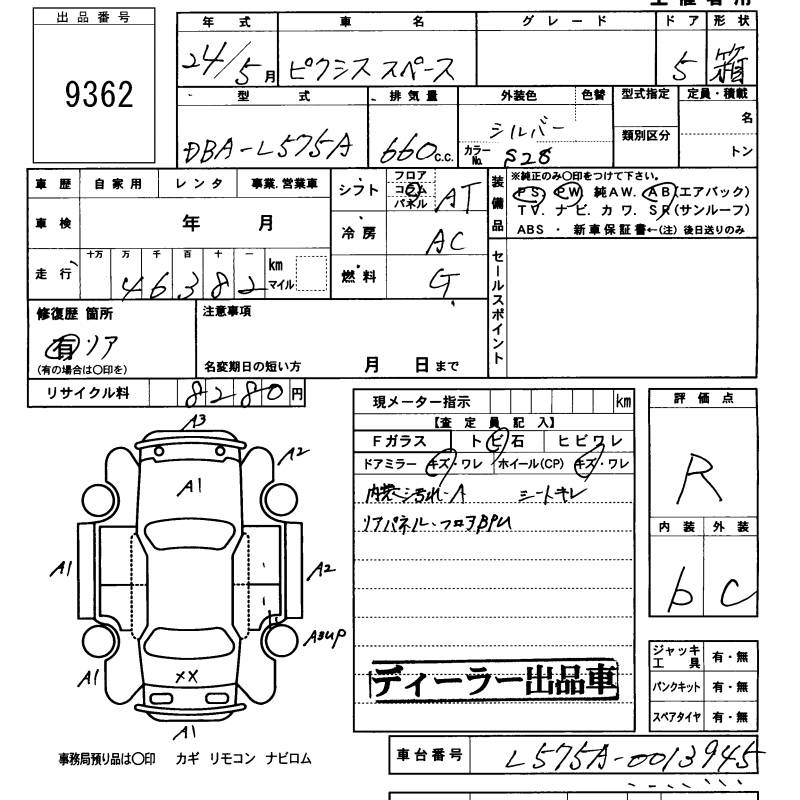 出品番号
9362
年式 車名 グレード ドア 形状
24/5月 ピクシス スペース 5 箱
型式 排気量 外装色 色替 型式指定 定員・積載
DBA-L575A 660c.c. シルバー カラーNo. S28 類別区分 名 トン
車歴 自家用 レンタ 事業.営業車
シフト フロア コラム パネル AT
装備品 ※純正のみ〇印をつけて下さい。
PS. PW. 純AW. AB(エアバック)
TV. ナビ. カワ. SR(サンルーフ)
ABS ・ 新車保証書←(注) 後日送りのみ
車検 年 月
冷房 AC
走行 十万 万 千 百 十 一 km マイル
46382
燃料 G
セールスポイント
修復歴 箇所
有 リア
(有の場合は〇印を)
注意事項
名変期日の短い方 月 日まで
リサイクル料 8280円
現メーター指示 km
【査定員記入】
Fガラス トビ石 ヒビワレ
ドアミラー キズ・ワレ ホイール(CP) キズ・ワレ
内装ヨゴレ・A シートキレ
リアパネル・フロアBPU
ディーラー出品車
評価点
R
内装 外装
b C
ジャッキ工具 有・無
パンクキット 有・無
スペアタイヤ 有・無
A3
A2
A1
A1
A2
A3UP
A1
XX
A1
事務局預り品は〇印 カギ リモコン ナビロム
車台番号 L575A-0013945